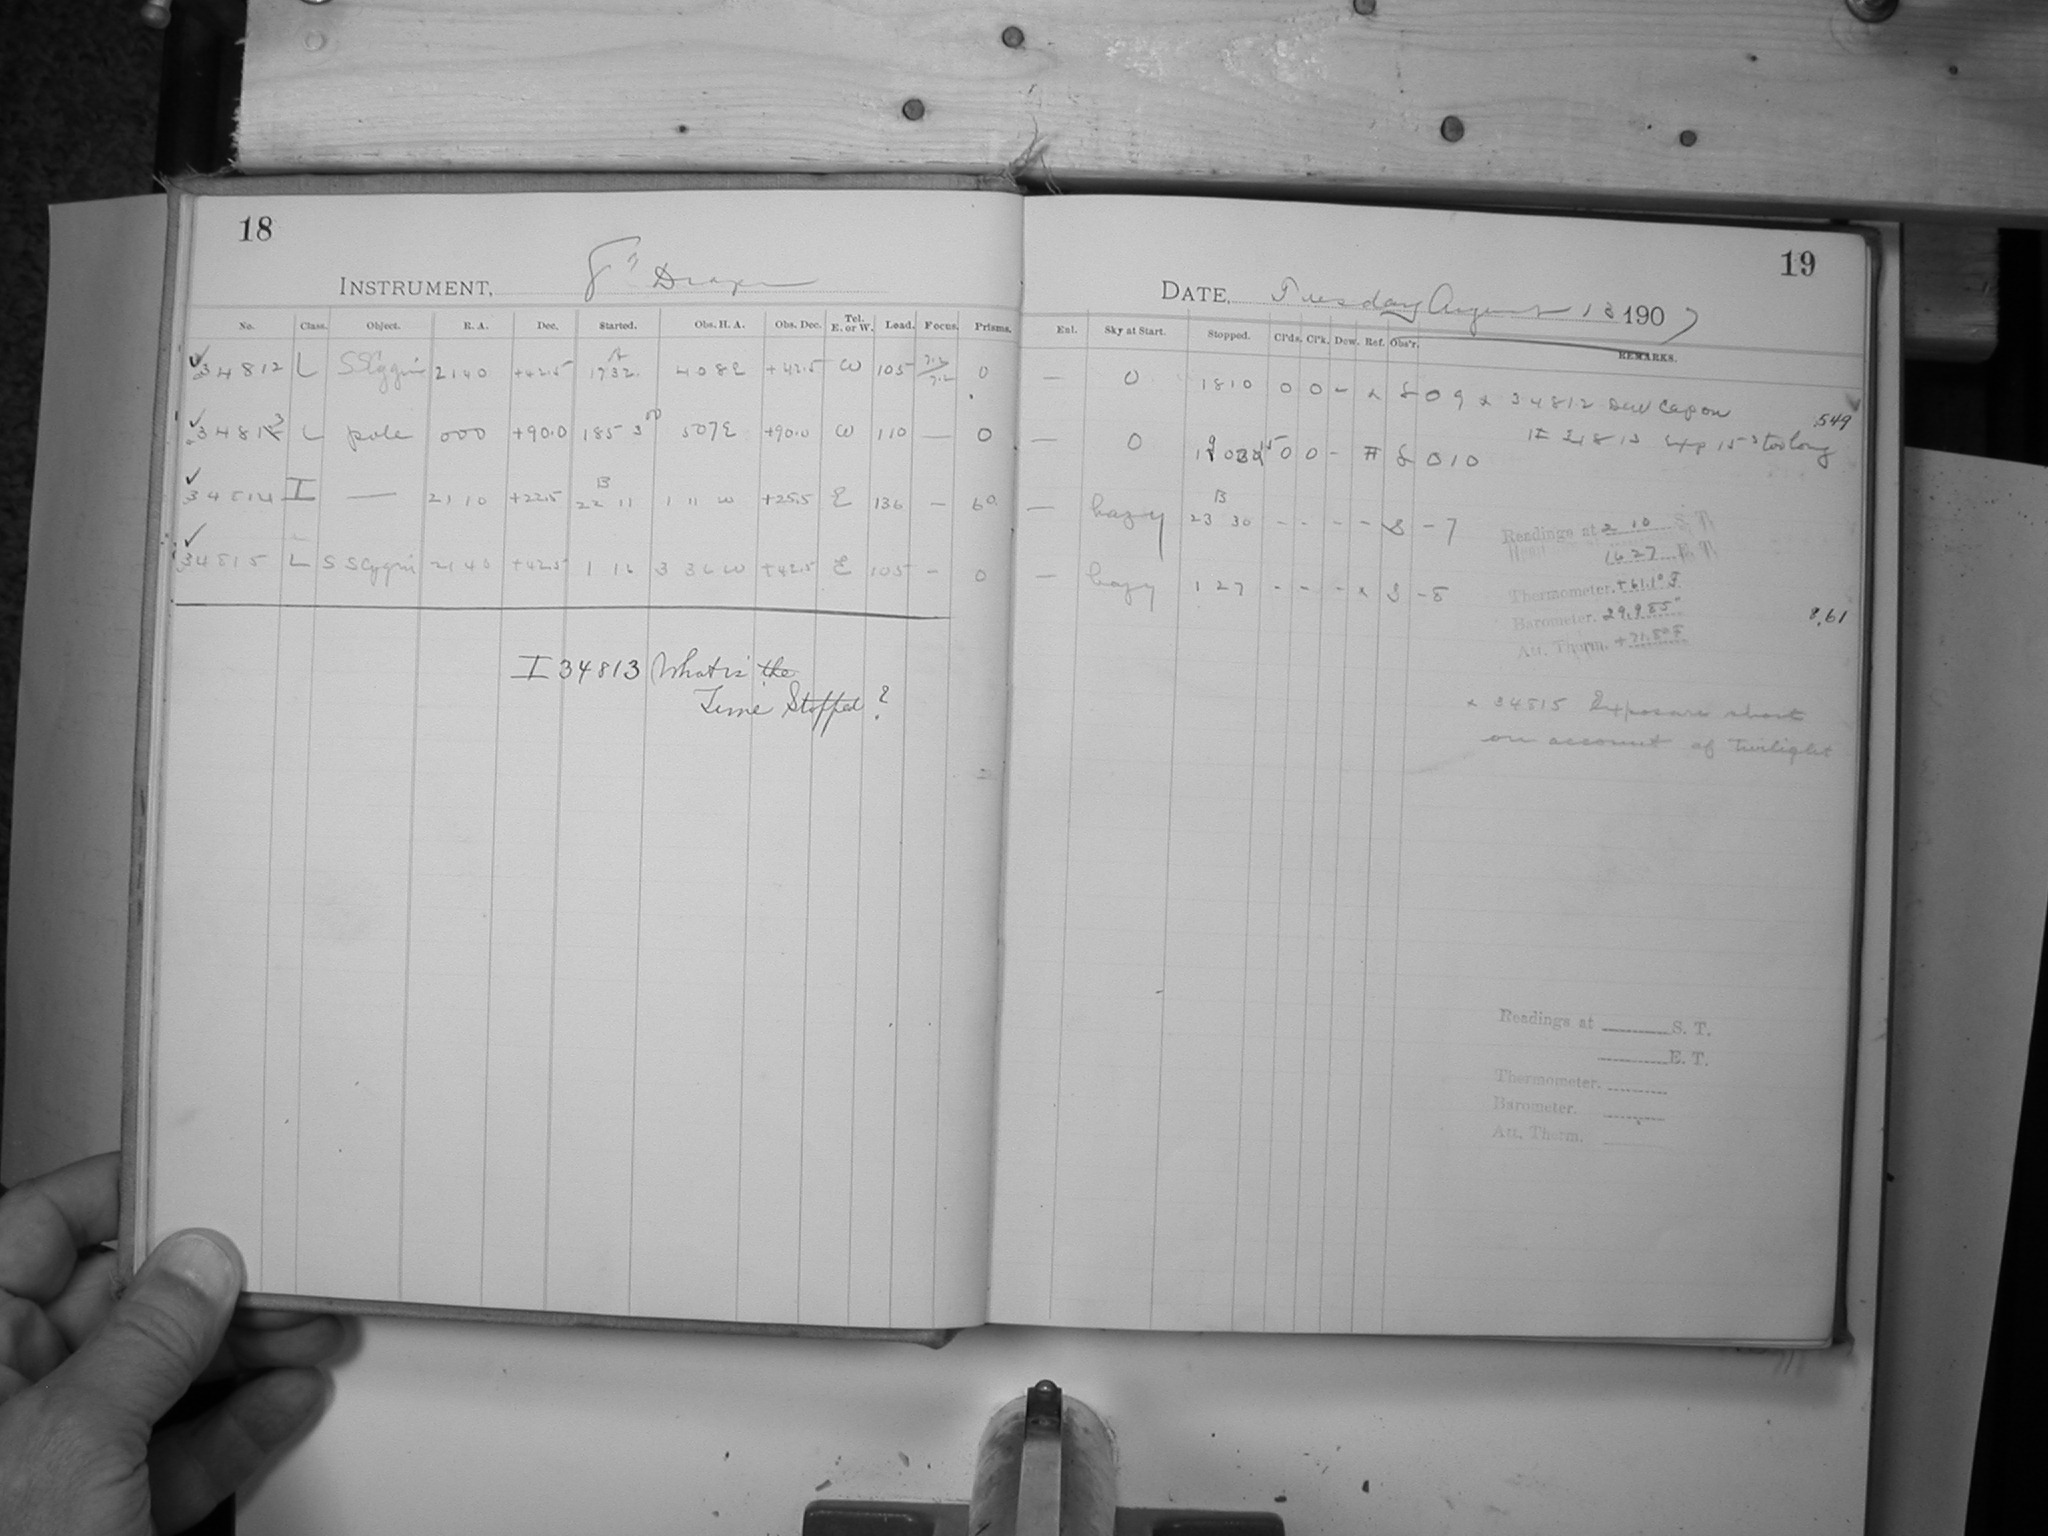 18
INSTRUMENT, 8" Draper
No. Class. Object. R. A. Dec. Started. Obs. H. A. Obs. Dec. Tel. E. or W. Load. Focus. Prisms.
34812 L SS Cygni 2140 +42.5 1732 408E +42.5 W 105 7.2 0
34813 L pole 000 +90.0 1853 507E +90.0 W 110 — 0
34814 I — 2110 +22.5 B 22 11 1 11 W +25.5 E 136 — 60
34815 L SS Cygni 2140 +42.5 1 16 3 36 W +42.5 E 105 — 0
I 34813 What is the
Time Stopped?
19
DATE, Tuesday August 13 1907
Enl. Sky at Start. Stopped. Cl'ds. Cl'k. Dew. Ref. Obs'r. REMARKS.
— 0 1810 0 0 - x 8 0 9 x 34812 Dew Cap on
549
— 0 0 0 - # 8 0 10 # 34813 Exp 15s too long
— hazy B 23 30 - - - - S - 7
— hazy 1 27 - - - x S - 8
Readings at 2 10 S. T.
16 27 E. T.
Thermometer. +61.1° F
Barometer. 29.985"
Att. Therm. +71.8° F
8.61
x 34815 Exposure short
on account of twilight
Readings at S. T.
E. T.
Thermometer.
Barometer.
Att. Therm.